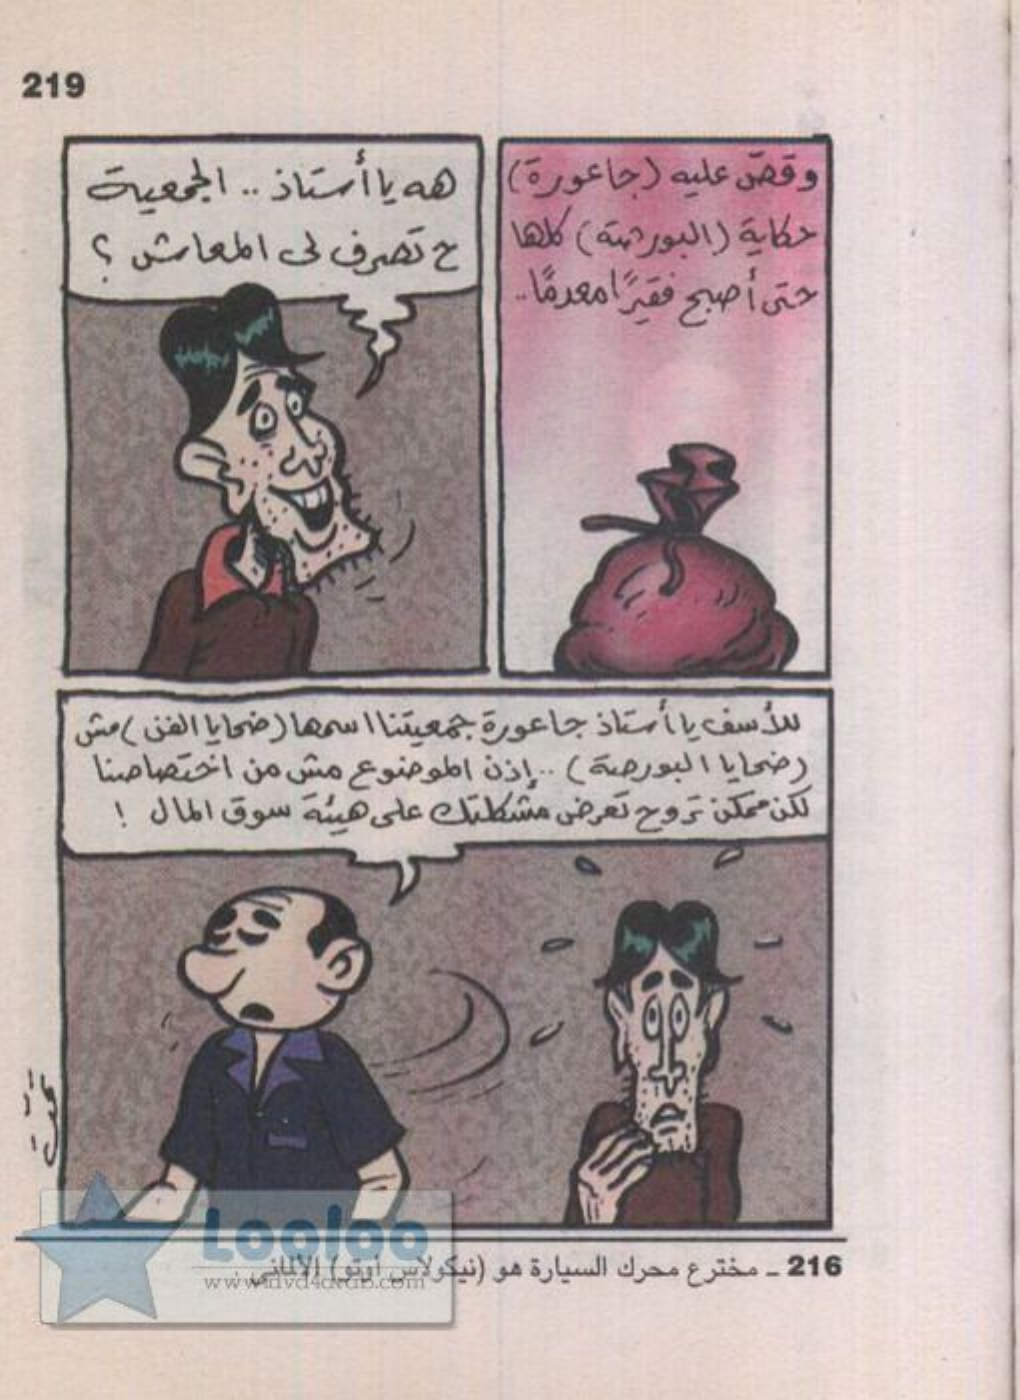 219
وقصّ عليه (جاعورة)
حكاية (البورصة) كلها
حتى أصبح فقيرًا معدمًا..
هه يا أستاذ .. الجمعية
ح تصرف لى المعاش ؟
للأسف يا أستاذ جاعورة جمعيتنا اسمها (ضحايا الفن) مش
(ضحايا البورصة) .. إذن الموضوع مش من اختصاصنا
لكن ممكن تروح تعرض مشكلتك على هيئة سوق المال !
216 ـ مخترع محرك السيارة هو (نيكولاس أوتو) الألمانى
Looloo
www.dvd4arab.com